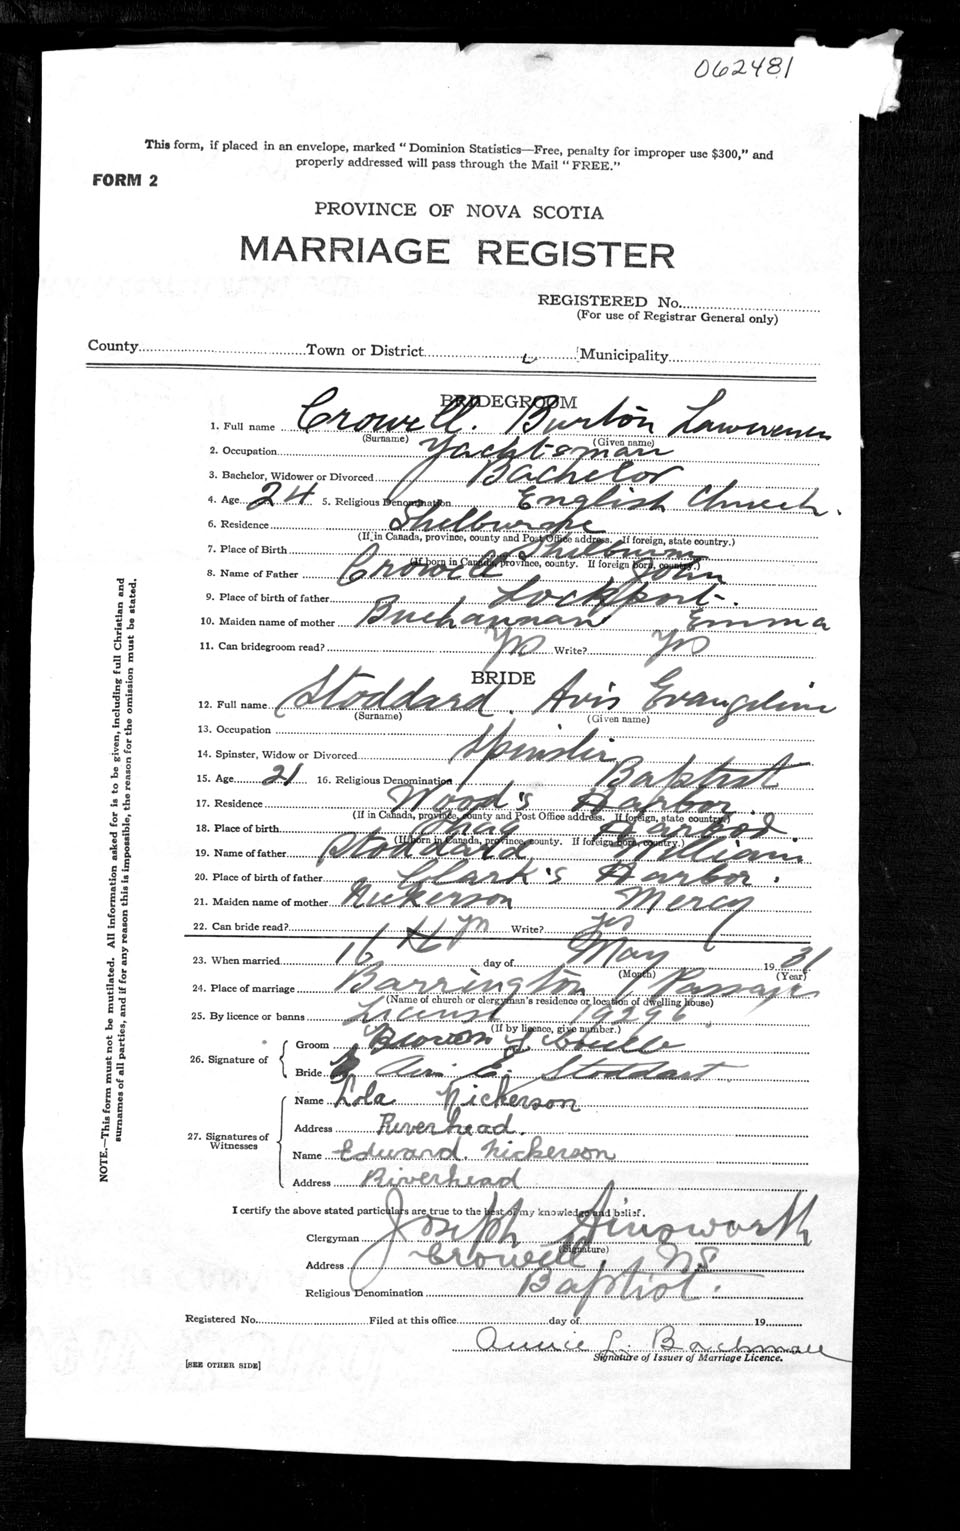 062481
This form, if placed in an envelope, marked "Dominion Statistics—Free, penalty for improper use $300," and
properly addressed will pass through the Mail "FREE."
FORM 2
PROVINCE OF NOVA SCOTIA
MARRIAGE REGISTER
REGISTERED No.
(For use of Registrar General only)
County Town or District Municipality
BRIDEGROOM
1. Full name Crowell. Burton Lawrence
(Surname) (Given name)
2. Occupation Yachtsman
3. Bachelor, Widower or Divorced Bachelor
4. Age 24 5. Religious Denomination English Church.
6. Residence Shelburne
(If in Canada, province, county and Post Office address. If foreign, state country.)
7. Place of Birth Shelburne
(If born in Canada, province, county. If foreign born, country.)
8. Name of Father Crowell John
9. Place of birth of father Lockport.
10. Maiden name of mother Buchannan Emma
11. Can bridegroom read? Yes Write? Yes
BRIDE
12. Full name Stoddard. Avis Evangeline
(Surname) (Given name)
13. Occupation
14. Spinster, Widow or Divorced Spinster
15. Age 21 16. Religious Denomination Baptist
17. Residence Wood's Harbor.
(If in Canada, province, county and Post Office address. If foreign, state country.)
18. Place of birth Harbor.
(If born in Canada, province, county. If foreign born, country.)
19. Name of father Stoddard William
20. Place of birth of father Clark's Harbor.
21. Maiden name of mother Nickerson Mercy
22. Can bride read? Write? Yes
23. When married 16 day of May 1931
(Month) (Year)
24. Place of marriage Barrington Passage
(Name of church or clergyman's residence or location of dwelling house)
25. By licence or banns License 19296
(If by licence, give number.)
26. Signature of
Groom Burton L Crowell
Bride Avis E. Stoddart
27. Signatures of Witnesses
Name Lola Nickerson
Address Riverhead.
Name Edward. Nickerson
Address Riverhead
I certify the above stated particulars are true to the best of my knowledge and belief.
Clergyman Joseph Ainsworth
(Signature)
Address Crowell NS
Religious Denomination Baptist.
Registered No. Filed at this office day of 19
Annie L.
Signature of Issuer of Marriage Licence.
[SEE OTHER SIDE]
NOTE.—This form must not be mutilated. All information asked for is to be given, including full Christian and
surnames of all parties, and if for any reason this is impossible, the reason for the omission must be stated.